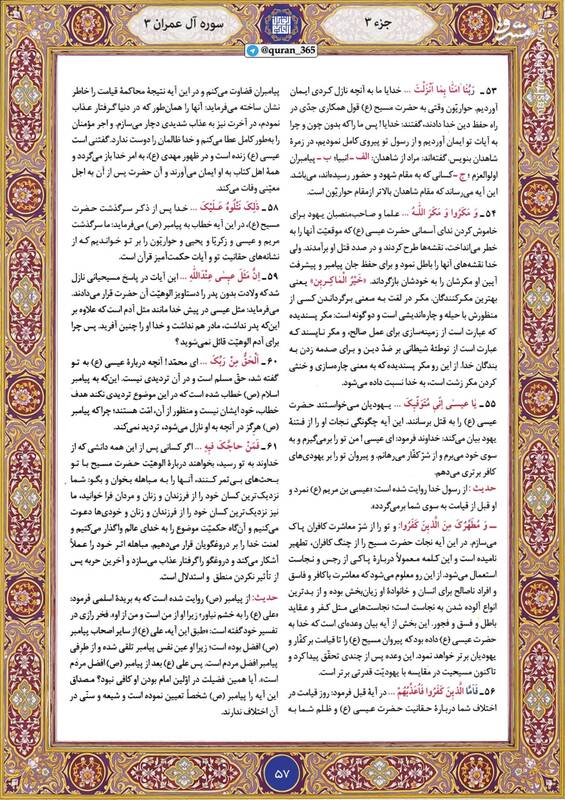 جزء ۳
سوره آل عمران ۳
@quran_365
۵۳ ـ رَبَّنَا آمَنَّا بِمَا أَنْزَلْتَ ... خدایا ما به آنچه نازل کردی ایمان
آوردیم. حواریّون وقتی به حضرت مسیح (ع) قول همکاری جدّی در
راه حفظ دین خدا دادند، گفتند: خدایا! پس ما را که بدون چون و چرا
به آیات تو ایمان آوردیم و از رسول تو پیروی کامل نمودیم، در زمرهٔ
شاهدان بنویس. گفته‌اند: مراد از شاهدان: الف ـ انبیا؛ ب ـ پیامبران
اولوالعزم؛ ج ـ کسانی که به مقام شهود و حضور رسیده‌اند، می‌باشد.
این آیه می‌رساند که مقام شاهدان بالاتر از مقام حواریّون است.
۵۴ ـ وَ مَكَرُوا وَ مَكَرَ اللَّهُ ... علما و صاحب‌منصبان یهود برای
خاموش کردن ندای آسمانی حضرت عیسی (ع) که موقعیّت آنها را به
خطر می‌انداخت، نقشه‌ها طرح کردند و در صدد قتل او برآمدند. ولی
خدا نقشه‌های آنها را باطل نمود و برای حفظ جان پیامبر و پیشرفت
آیین او مکرشان را به خودشان بازگرداند. «خَيْرُ الْمَاكِرِين» یعنی
بهترین مکرکنندگان. مکر در لغت به معنی برگرداندن کسی از
منظورش با حیله و چاره‌اندیشی است و دو گونه است: مکر پسندیده
که عبارت است از زمینه‌سازی برای عمل صالح، و مکر ناپسند که
عبارت است از توطئهٔ شیطانی بر ضدّ دین و برای صدمه زدن به
بندگان خدا. از این رو مکر پسندیده که به معنی چاره‌سازی و خنثی
کردن مکر زشت است، به خدا نسبت داده می‌شود.
۵۵ ـ يَا عِيسَى إِنِّي مُتَوَفِّيكَ ... یهودیان می‌خواستند حضرت
عیسی (ع) را به قتل برسانند. این آیه چگونگی نجات او را از فتنهٔ
یهود بیان می‌کند: خداوند فرمود: ای عیسی! من تو را برمی‌گیرم و به
سوی خود می‌برم و از شرّ کفّار می‌رهانم. و پیروان تو را بر یهودی‌های
کافر برتری می‌دهم.
حدیث: از رسول خدا روایت شده است: «عیسی بن مریم (ع) نمرد و
او قبل از قیامت به سوی شما برمی‌گردد».
ـ وَ مُطَهِّرُكَ مِنَ الَّذِينَ كَفَرُوا: و تو را از شرّ معاشرت کافران پاک
می‌سازم. در این آیه نجات حضرت مسیح را از چنگ کافران، تطهیر
نامیده است و این کلمه معمولاً دربارهٔ پاکی از رجس و نجاست
استعمال می‌شود. از این رو معلوم می‌شود که معاشرت با کافر و فاسق
و افراد ناصالح برای انسان و خانوادهٔ او زیان‌بخش بوده و از بدترین
انواع آلوده شدن به نجاست است؛ نجاست‌هایی مثل کفر و عقاید
باطل و فسق و فجور. این بخش از آیه بیان وعده‌ای است که خدا به
حضرت عیسی (ع) داده بود که پیروان مسیح را تا قیامت بر کفّار و
یهودیان برتر خواهد نمود. این وعده پس از چندی تحقّق پیدا کرد و
تاکنون مسیحیت در مقایسه با یهودیت قدرتی برتر است.
۵۶ ـ فَأَمَّا الَّذِينَ كَفَرُوا فَأُعَذِّبُهُمْ ... در آیهٔ قبل فرمود: روز قیامت در
اختلاف شما دربارهٔ حقانیت حضرت عیسی (ع) و ظلم شما به
پیامبران قضاوت می‌کنم و در این آیه نتیجهٔ محاکمهٔ قیامت را خاطر
نشان ساخته می‌فرماید: آنها را همان‌طور که در دنیا گرفتار عذاب
نمودم، در آخرت نیز به عذاب شدیدی دچار می‌سازم. و اجر مؤمنان
را به‌طور کامل عطا می‌کنم و خدا ظالمان را دوست ندارد. گفتنی است
عیسی (ع) زنده است و در ظهور مهدی (ع)، به امر خدا باز می‌گردد و
همهٔ اهل کتاب به او ایمان می‌آورند و آن حضرت پس از آن به اجل
معیّنی وفات می‌کند.
۵۸ ـ ذَلِكَ نَتْلُوهُ عَلَيْكَ ... خدا پس از ذکر سرگذشت حضرت
مسیح (ع)، در این آیه خطاب به پیامبر (ص) می‌فرماید: ما سرگذشت
مریم و عیسی و زکریا و یحیی و حواریّون را بر تو خواندیم که از
نشانه‌های حقانیت تو و آیات حکمت‌آمیز قرآن است.
۵۹ ـ إِنَّ مَثَلَ عِيسَى عِنْدَ اللَّهِ ... این آیات در پاسخ مسیحیانی نازل
شد که ولادت بدون پدر را دستاویز الوهیّت آن حضرت قرار می‌دادند.
می‌فرماید: مَثَل عیسی در پیش خدا مانند مثل آدم است که علاوه بر
این‌که پدر نداشت، مادر هم نداشت و خدا او را چنین آفرید. پس چرا
برای آدم الوهیّت قائل نمی‌شوید؟
۶۰ ـ اَلْحَقُّ مِنْ رَبِّكَ ... ای محمّد! آنچه دربارهٔ عیسی (ع) به تو
گفته شد، حق مسلم است و در آن تردیدی نیست. این‌که به پیامبر
اسلام (ص) خطاب شده است که در این موضوع تردیدی نکند هدف
خطاب، خود ایشان نیست و منظور از آن، امّت هستند؛ چرا که پیامبر
(ص) هرگز در آنچه به او نازل می‌شود، تردید نمی‌کند.
۶۱ ـ فَمَنْ حَاجَّكَ فِيهِ ... اگر کسانی پس از این همه دانشی که از
خداوند به تو رسید، بخواهند دربارهٔ الوهیّت حضرت مسیح با تو
بحث‌های بی‌ثمر کنند، آنها را به مباهله بخوان و بگو: شما
نزدیک‌ترین کسان خود را از فرزندان و زنان و مردان فرا خوانید، ما
نیز نزدیک‌ترین کسان خود را از فرزندان و زنان و خودی‌ها دعوت
می‌کنیم و آن‌گاه حکمیّت موضوع را به خدای عالم واگذار می‌کنیم و
لعنت خدا را بر دروغگویان قرار می‌دهیم. مباهله اثر خود را عملاً
آشکار می‌کند و دروغگو را گرفتار عذاب می‌سازد و آخرین حربه پس
از تأثیر نکردن منطق و استدلال است.
حدیث: از پیامبر (ص) روایت شده است که به بریدهٔ اسلمی فرمود:
«علی (ع) را به خشم نیاور؛ زیرا او از من است و من از او». فخر رازی در
تفسیر خود گفته است: «طبق این آیه، علی (ع) از سایر اصحاب پیامبر
(ص) افضل بوده است؛ زیرا او عین نفس پیامبر تلقی شده و از طرفی
پیامبر افضل مردم است. پس علی (ع) بعد از پیامبر (ص) افضل مردم
است». آیا همین فضیلت در اوّلین امام بودن او کافی نبود؟ مصداق
این آیه را پیامبر (ص) شخصاً تعیین نموده است و شیعه و سنّی در
آن اختلاف ندارند.
۵۷